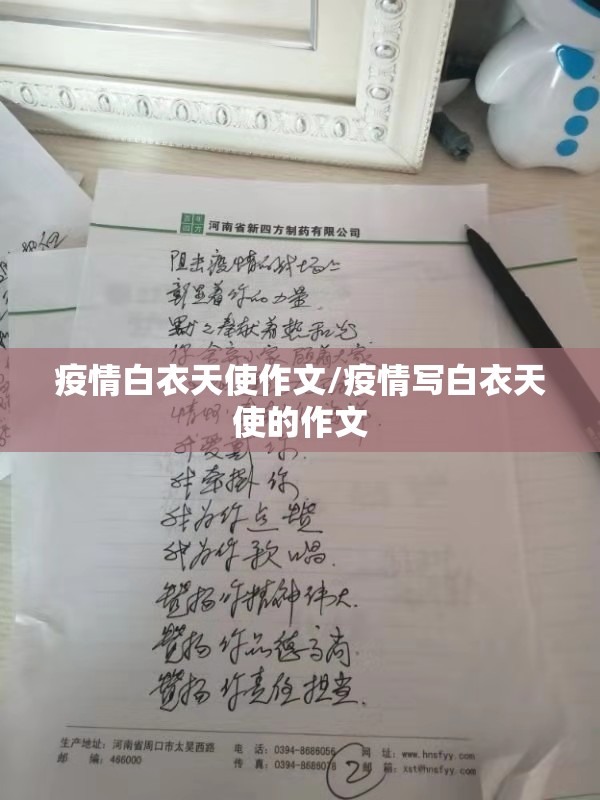 河南省新四方制药有限公司
阻击疫情的战场上
彰显着你的力量
默默奉献着热和光
你舍弃小家 顾着大家
疫情白衣天使作文/疫情写白衣天
使的作文
我牵掛你
我为你点赞
我为你歌唱.
赞扬你精神伟大.
赞扬你品德高尚.
赞扬你责任担当.
生产地址：河南省周口市太昊西路 电 话：0394-8686056 网 址：www.hnsfyy.com
邮 编：466000 传 真：0394-8686078 邮 箱：xst@hnsfyy.com
2